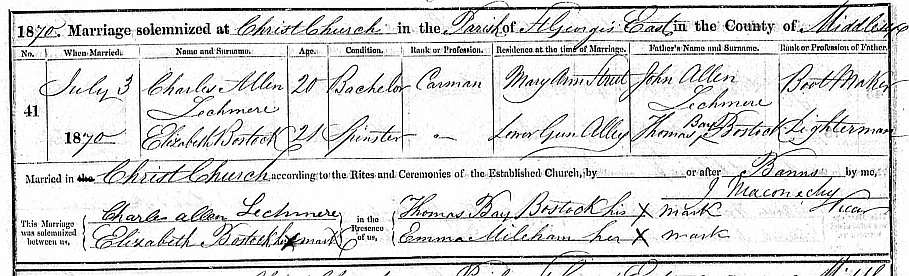 1870. Marriage solemnized at Christ Church in the Parish of St Georges East in the County of Middlesex
No. When Married. Name and Surname. Age. Condition. Rank or Profession. Residence at the time of Marriage. Father's Name and Surname. Rank or Profession of Father.
41 July 3 1870 Charles Allen Lechmere 20 Bachelor Carman Mary Ann Street John Allen Lechmere Boot Maker
Elizabeth Bostock 21 Spinster - Lower Gun Alley Thomas Bay Bostock Lighterman
Married in the Christ Church according to the Rites and Ceremonies of the Established Church, by or after Banns by me,
J Maconechy Vicar
This Marriage was solemnized between us, Charles Allen Lechmere in the Presence of us, Thomas Bay Bostock his X mark
Elizabeth Bostock her X mark Emma Mileham her X mark